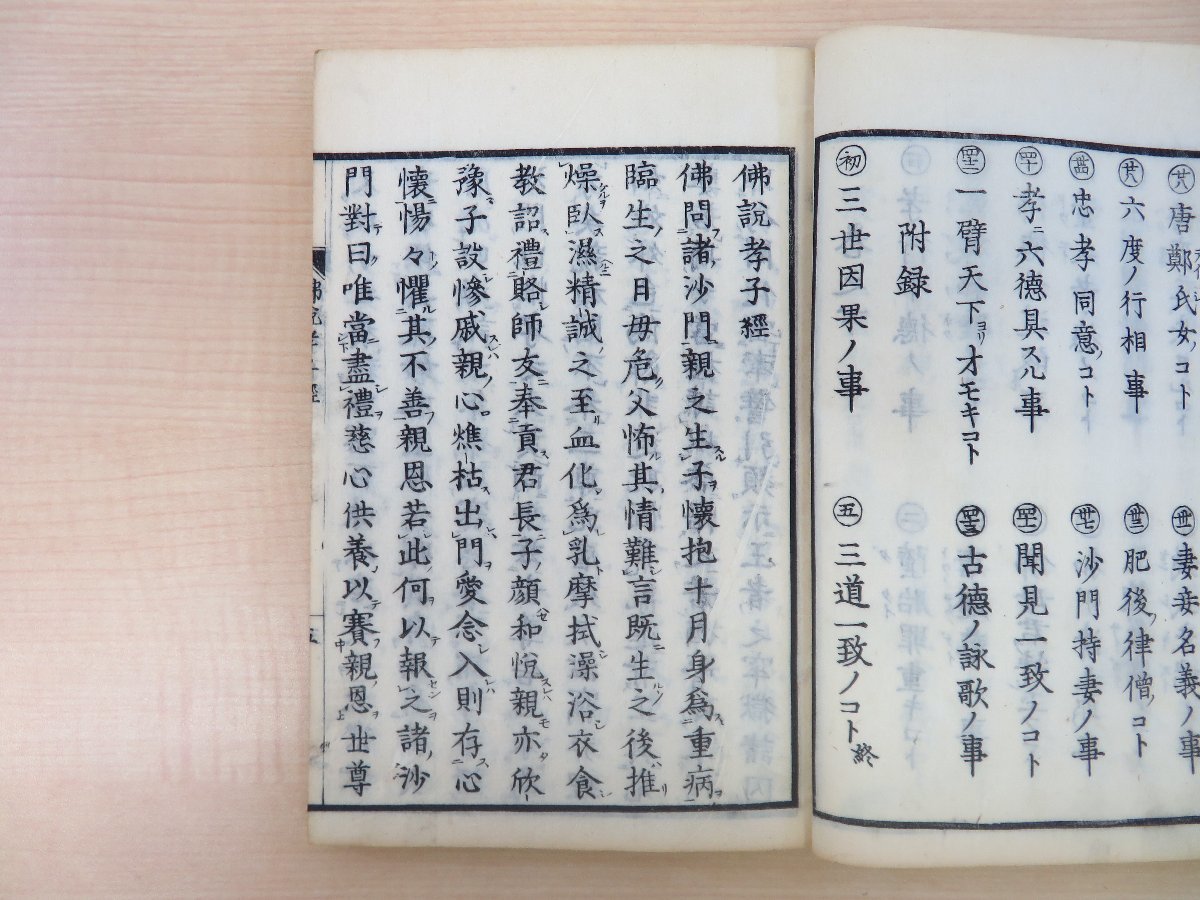 唐鄭氏女ノコト
妻妾名義ノ事
六度ノ行相事
肥後ノ律僧ノコト
忠孝同意ノコト
沙門持妻ノ事
孝ニ六德具スル事
聞見一致ノコト
一臂天下ヨリオモキコト
古德ノ詠歌ノ事
附録
初 三世因果ノ事
五 三道一致ノコト 終
佛說孝子經
佛問諸沙門親之生子懷抱十月身爲重病
臨生之日母危父怖其情難言既生之後推
燥臥濕精誠之至血化爲乳摩拭澡浴衣食
教詔禮賂師友奉貢君長子顏和悅親亦欣
豫子設慘戚親心燋枯出門愛念入則存心
懷惕々懼其不善親恩若此何以報之諸沙
門對曰唯當盡禮慈心供養以賽親恩世尊